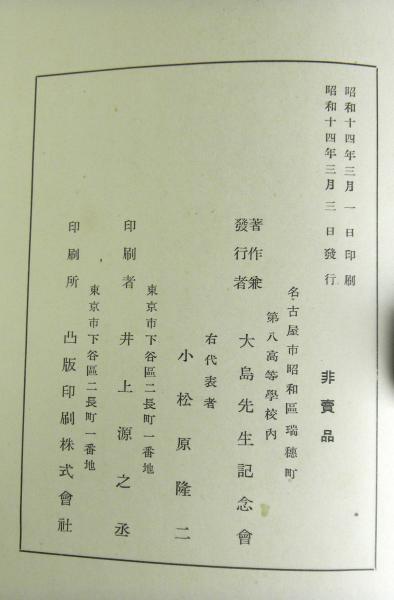 昭和十四年三月一日印刷
昭和十四年三月三日發行
非賣品
名古屋市昭和區瑞穗町
第八高等學校內
著作兼
發行者
大島先生記念會
右代表者
小松原隆二
東京市下谷區二長町一番地
印刷者
井上源之丞
東京市下谷區二長町一番地
印刷所
凸版印刷株式會社